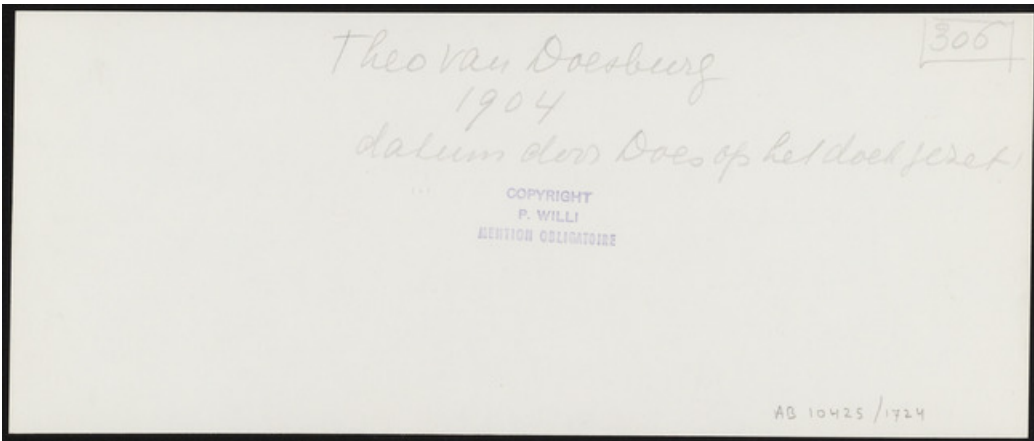 306
Theo van Doesburg
1904
datum door Does op het doek gezet
COPYRIGHT
P. WILLI
MENTION OBLIGATOIRE
AB 10425/1724